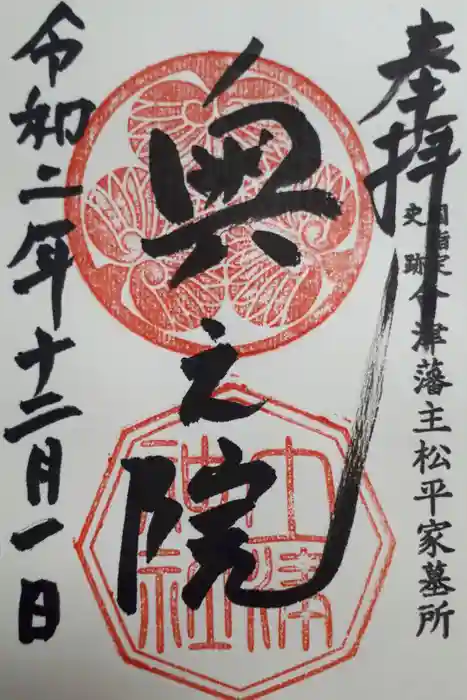 奉拝
国指定史跡 会津藩主松平家墓所
奥之院
土津神社
令和二年十二月一日